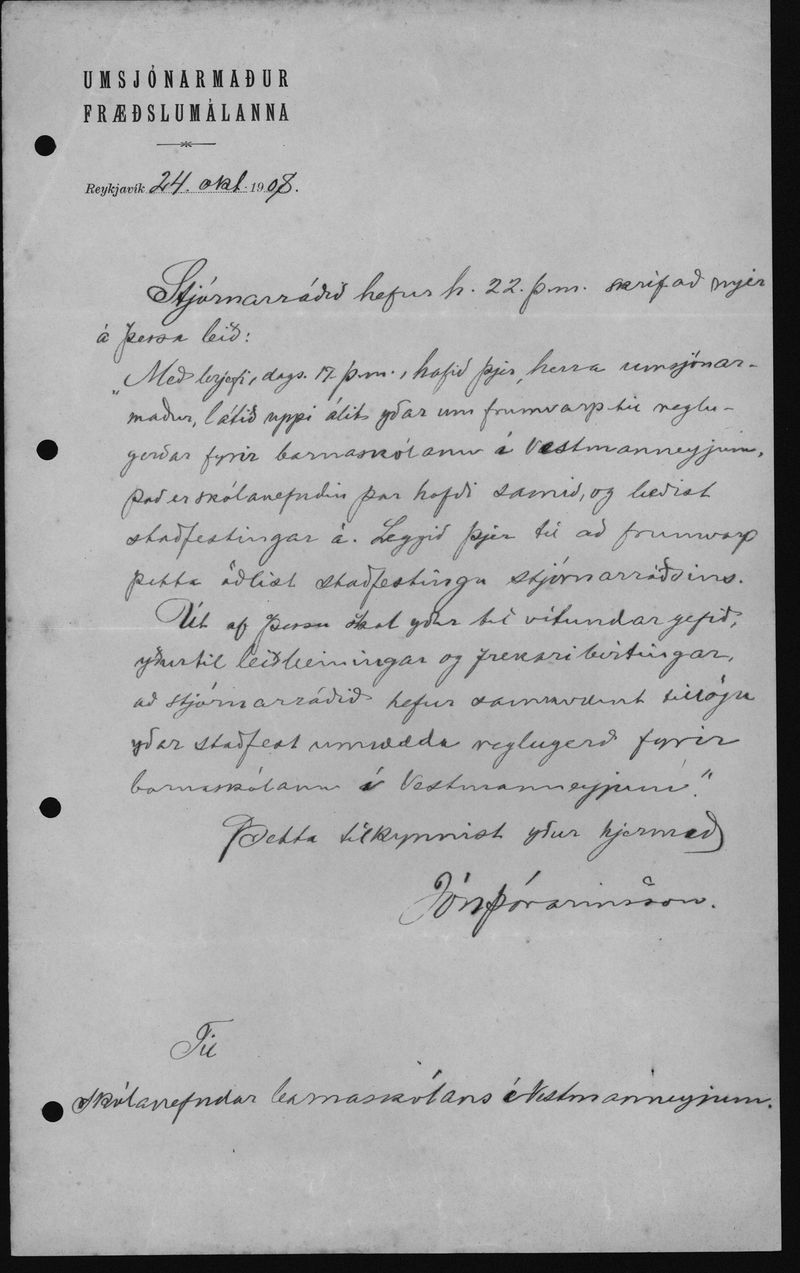 UMSJÓNARMAÐUR
FRÆÐSLUMÁLANNA
Reykjavík 24. okt. 1908.
Stjórnarráðið hefur h. 22. þ.m. skrifað mjer
á þessa leið:
„Með brjefi, dags. 17 þ.m., hafið þjer, herra umsjónar-
maður, látið uppi álit yðar um frumvarp til reglu-
gerðar fyrir barnaskólann í Vestmanneyjum,
það er skólanefndin þar hafði samið, og beðist
staðfestingar á. Leggið þjer til að frumvarp
þetta öðlist staðfestingu stjórnarráðsins.
Út af þessu skal yður til vitundar gefið,
yður til leiðbeiningar og frekari birtingar,
að stjórnarráðið hefur samkvæmt tillögu
yðar staðfest umrædda reglugerð fyrir
barnaskólann í Vestmanneyjum."
Þetta tilkynnist yður hjermeð
Jón Þórarinsson.
Til
skólanefndar barnaskólans í Vestmanneyjum.